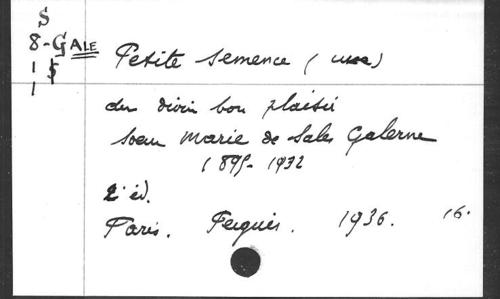 S
8-GALE
1 $
1
Petite semence (une)
du divin bon plaisir
soeur Marie de Sales Galerne
1895-1932
2e éd.
Paris. Feiguès. 1936. 16.